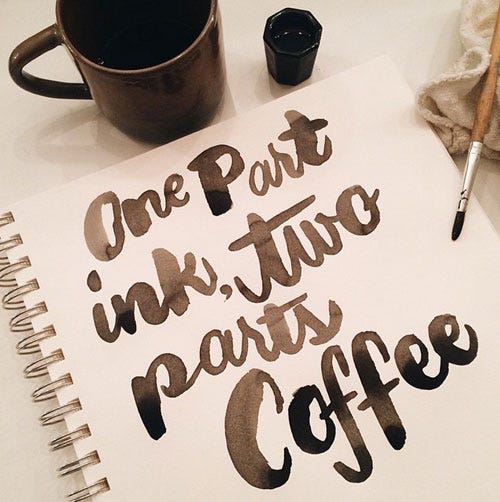 One Part
ink, two
parts
Coffee